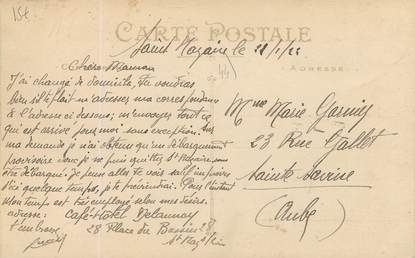 15€
CARTE POSTALE
Saint Nazaire le 21/1/22
(44)
ADRESSE
Chère Maman
J'ai changé de domicile, tu voudras
bien s'il te plait m'adresser ma correspondance
à l'adresse ci dessous; m'envoyer tout ce
qui est arrivé pour moi sans exception. Sur
ma demande je n'ai obtenu qu'un débarquement
provisoire donc je ne puis quitter St Nazaire sans
être débarqué. Je pense aller te voir sauf imprévu
d'ici quelque temps, je te préviendrai. Pour l'instant
mon temps est très employé selon mes désirs.
adresse: Café-Hotel Delaunay
28 Place du Bassin
St Nazaire
t'embrasse
Mme Marie Garnier
23 Rue Gallet
Sainte-Savine
(Aube)